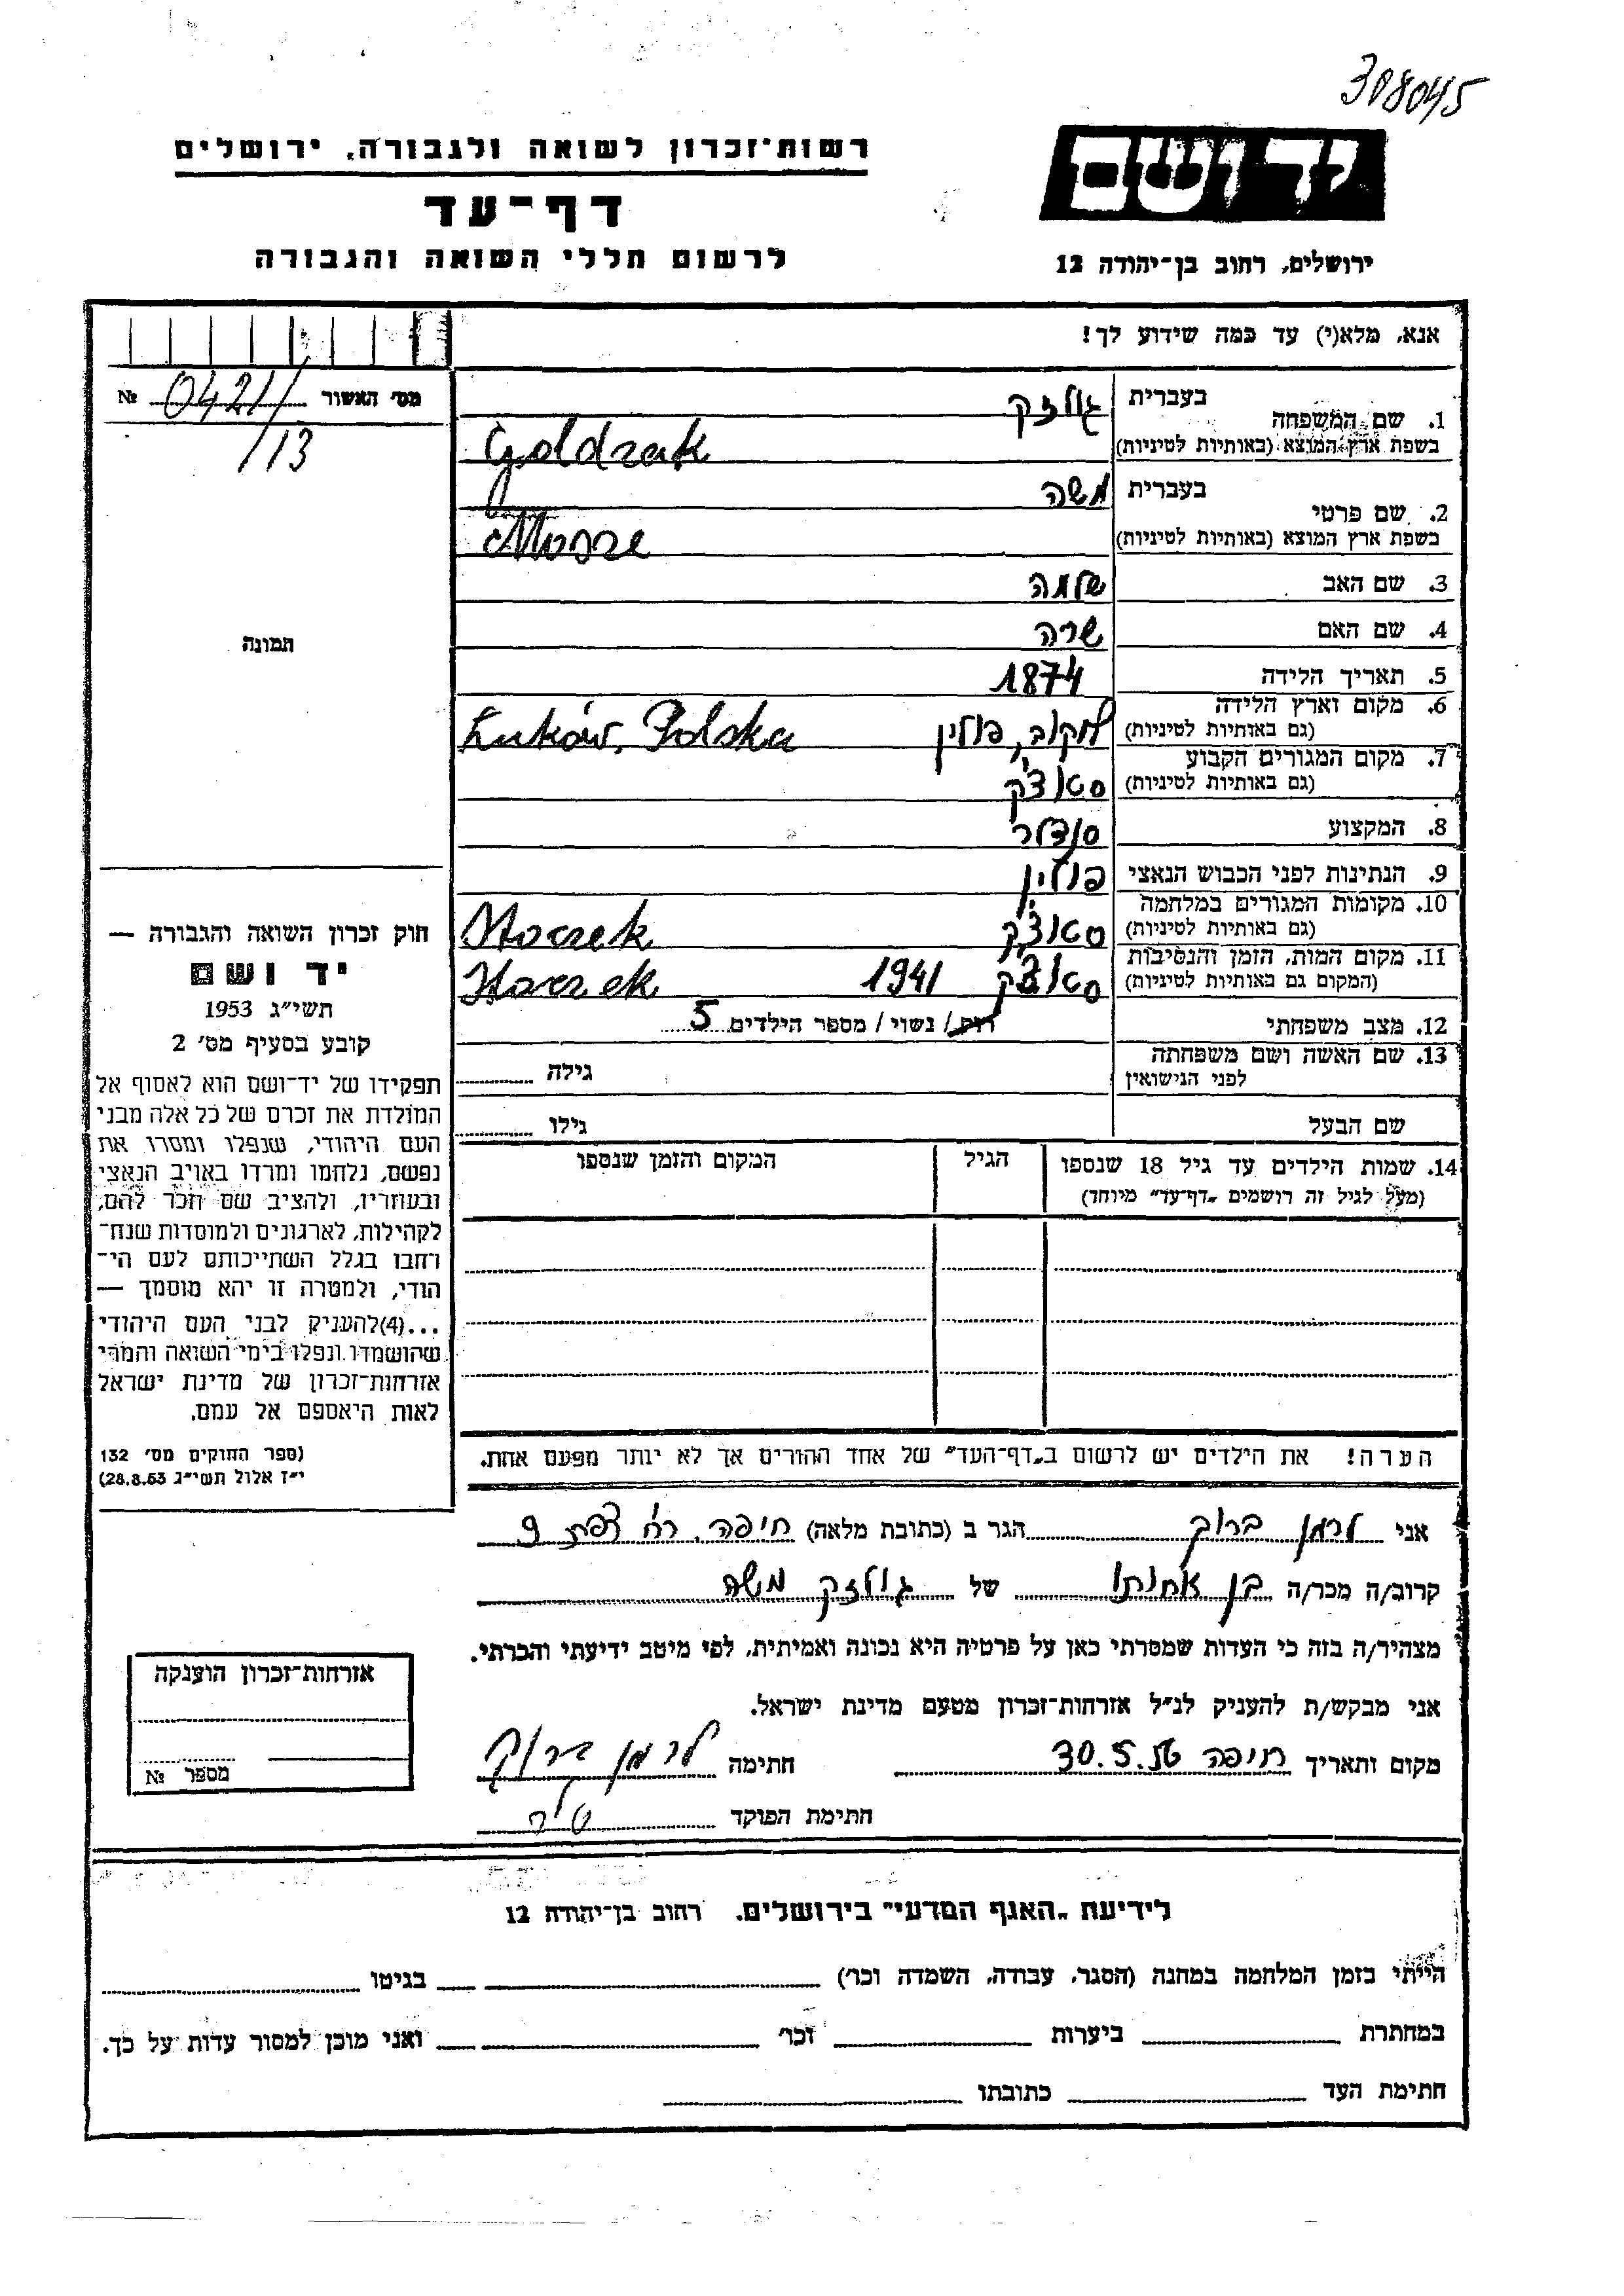 308045
רשות־זכרון לשואה ולגבורה, ירושלים
דף־עד
לרשום חללי השואה והגבורה
יד ושם
ירושלים, רחוב בן־יהודה 12
אנא, מלא(י) עד כמה שידוע לך!
מס׳ האשור 0421/ №
/13
1. שם המשפחה בעברית גולזק
בשפת ארץ המוצא (באותיות לטיניות) Goldzak
2. שם פרטי בעברית משה
בשפת ארץ המוצא (באותיות לטיניות) Mosze
3. שם האב שלמה
4. שם האם שרה
5. תאריך הלידה 1874
6. מקום וארץ הלידה
(גם באותיות לטיניות) לוקוב, פולין Łuków, Polska
7. מקום המגורים הקבוע
(גם באותיות לטיניות) סטוצ׳ק
8. המקצוע סנדלר
9. הנתינות לפני הכבוש הנאצי פולין
10. מקומות המגורים במלחמה
(גם באותיות לטיניות) סטוצ׳ק Stoczek
11. מקום המות, הזמן והנסיבות
(המקום גם באותיות לטיניות) סטוצ׳ק 1941 Stoczek
12. מצב משפחתי רווק / נשוי / מספר הילדים 5
13. שם האשה ושם משפחתה
לפני הנישואין גילה
שם הבעל גילו
14. שמות הילדים עד גיל 18 שנספו הגיל המקום והזמן שנספו
(מעל לגיל זה רושמים „דף־עד״ מיוחד)
תמונה
חוק זכרון השואה והגבורה —
יד ושם
תשי״ג 1953
קובע בסעיף מס׳ 2
תפקידו של יד־ושם הוא לאסוף אל
המולדת את זכרם של כל אלה מבני
העם היהודי, שנפלו ומסרו את
נפשם, נלחמו ומרדו באויב הנאצי
ובעוזריו, ולהציב שם וזכר להם,
לקהילות, לארגונים ולמוסדות שנח־
רבו בגלל השתייכותם לעם הי־
הודי, ולמטרה זו יהא מוסמך —
...(4)להעניק לבני העם היהודי
שהושמדו ונפלו בימי השואה והמרי
אזרחות־זכרון של מדינת ישראל
לאות היאספם אל עמם.
(ספר החוקים מס׳ 132
י״ז אלול תשי״ג 28.8.53)
הערה! את הילדים יש לרשום ב„דף־העד״ של אחד ההורים אך לא יותר מפעם אחת.
אני לרמן ברוך הגר ב (כתובת מלאה) חיפה, רח׳ צפת 9
קרוב/ה מכר/ה בן אחותו של גולזק משה
מצהיר/ה בזה כי העדות שמסרתי כאן על פרטיה היא נכונה ואמיתית, לפי מיטב ידיעתי והכרתי.
אני מבקש/ת להעניק לנ״ל אזרחות־זכרון מטעם מדינת ישראל.
מקום ותאריך חיפה 30.5.56 חתימה לרמן ברוך
חתימת הפוקד
אזרחות־זכרון הוענקה
מספר №
לידיעת „האגף המדעי״ בירושלים. רחוב בן־יהודה 12
הייתי בזמן המלחמה במחנה (הסגר, עבודה, השמדה וכו׳) בגיטו
במחתרת ביערות וכו׳ ואני מוכן למסור עדות על כך.
חתימת העד כתובתו